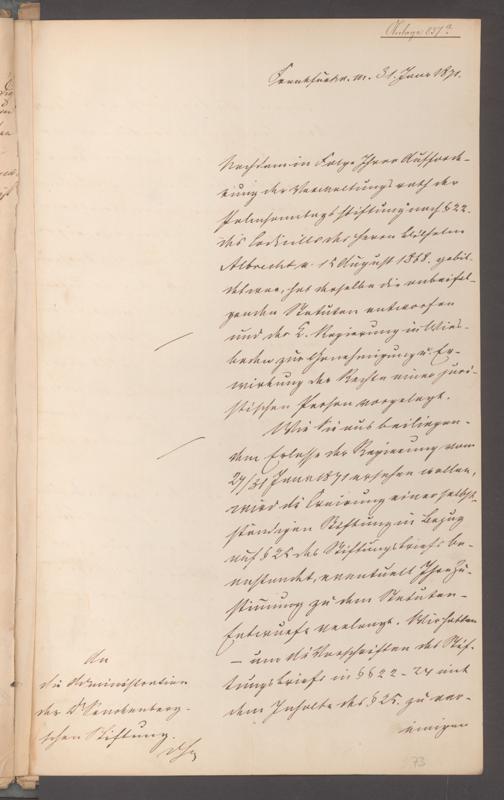 Anlage 237 a.
Frankfurt a. M. 31. Janr 1871.
Nachdem in Folge Ihrer Aufforde-
rung der Verwaltungsrath der
Palmsonntags Stiftung nach § 22.
des Codicills des Herrn Wilhelm
Albrecht v. 12 August 1868. gebil-
det war, hat derselbe die anbeifol-
genden Statuten entworfen
und der K. Regierung in Wies-
baden zur Genehmigung u. Er-
wirkung der Rechte einer juri-
stischen Person vorgelegt.
Wie Sie aus beiliegen-
dem Erlasse der Regierung vom
27/31 Janr 1871 ersehen wollen,
wird die Creirung einer selbst-
ständigen Stiftung in Bezug
auf § 25 des Stiftungsbriefs be-
anstandet, eventuell Ihre Zu-
stimmung zu dem Statuten-
Entwurfe verlangt. Wir hatten
— um die Vorschriften des Stif-
tungsbriefs in §§ 22 - 24 mit
dem Inhalte des § 25. zu ver-
einigen
An
die Administration
der Dr Senckenberg-
schen Stiftung.
73